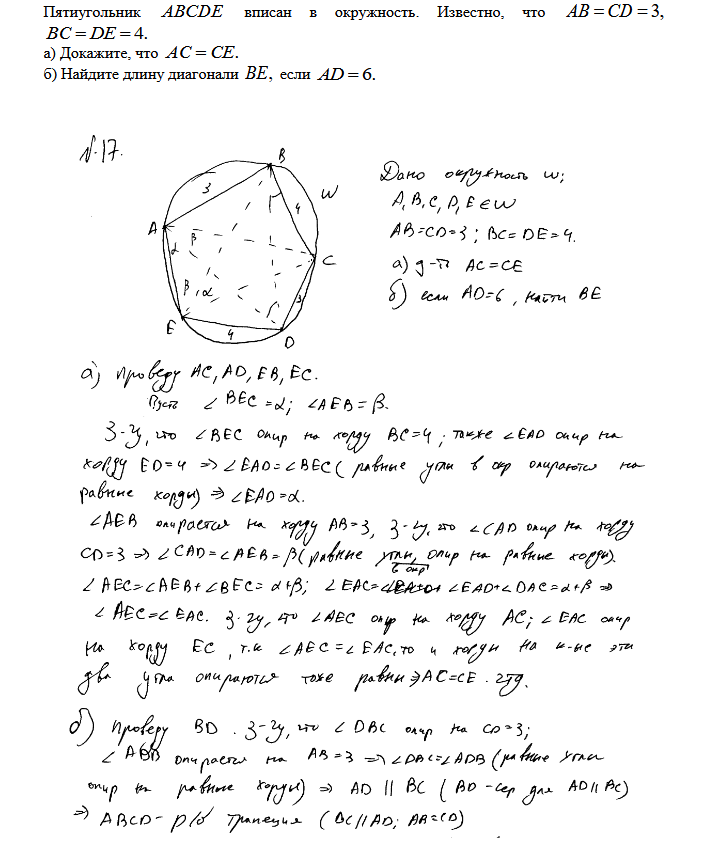 Пятиугольник ABCDE вписан в окружность. Известно, что AB = CD = 3,
BC = DE = 4.
а) Докажите, что AC = CE.
б) Найдите длину диагонали BE, если AD = 6.
N.17.
B
3
W
4
A
α
β
C
β, α
3
E
4
D
Дано окружность w;
A, B, C, D, E ∈ W
AB=CD=3; BC=DE=4.
а) д-ть AC=CE
б) если AD=6, найти BE
а) Проведу AC, AD, EB, EC.
Пусть ∠BEC=α; ∠AEB=β.
З-чу, что ∠BEC опир на хорду BC=4; также ∠EAD опир на
хорду ED=4 => ∠EAD=∠BEC (равные углы в окр опираются на
равные хорды) => ∠EAD=α.
∠AEB опирается на хорду AB=3, з-чу, что ∠CAD опир на хорду
CD=3 => ∠CAD=∠AEB=β (равные углы, в окр опир на равные хорды).
∠AEC=∠AEB+∠BEC=α+β; ∠EAC=∠EAD+∠DAC=α+β =>
∠AEC=∠EAC. З-чу, что ∠AEC опир на хорду AC; ∠EAC опир
на хорду EC, т.к ∠AEC=∠EAC, то и хорды на к-ые эти
два угла опираются тоже равны => AC=CE. чтд.
б) Проведу BD. З-чу, что ∠DBC опир на CD=3;
∠ADB опирается на AB=3 => ∠DBC=∠ADB (равные углы
опир на равные хорды) => AD || BC (BD-сек для AD||BC)
=> ABCD- р/б трапеция (BC||AD; AB=CD)